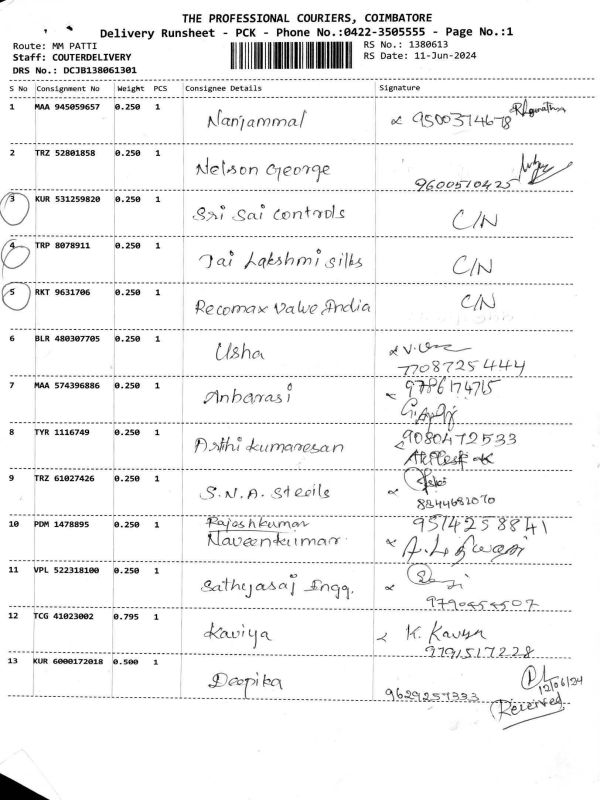 THE PROFESSIONAL COURIERS, COIMBATORE
Delivery Runsheet - PCK - Phone No.:0422-3505555 - Page No.:1
Route: MM PATTI
RS No.: 1380613
Staff: COUTERDELIVERY
RS Date: 11-Jun-2024
DRS No.: DCJB138061301
S No Consignment No Weight PCS Consignee Details Signature
1 MAA 945059657 0.250 1 Nanjammal 9500374678
2 TRZ 52801858 0.250 1 Nelson George 9600510425
3 KUR 531259820 0.250 1 Sri Sai Controls C/N
4 TRP 8078911 0.250 1 Jai Lakshmi silks C/N
5 RKT 9631706 0.250 1 Recomax Valve India C/N
6 BLR 480307705 0.250 1 Usha
7708725444
7 MAA 574396886 0.250 1 Anbarasi 9786174715
8 TYR 1116749 0.250 1 Arthi kumaresan 9080472533
9 TRZ 61027426 0.250 1 S.N.A. Steeils
8344682070
10 PDM 1478895 0.250 1 Rajeshkumar 9514258841
Naveenkumar
11 VPL 522318100 0.250 1 Sathyasai Engg.
12 TCG 41023002 0.795 1 Kaviya K. Kaviya
9791517228
13 KUR 6000172018 0.500 1 Deepika 9629257333
12/06/24
Received